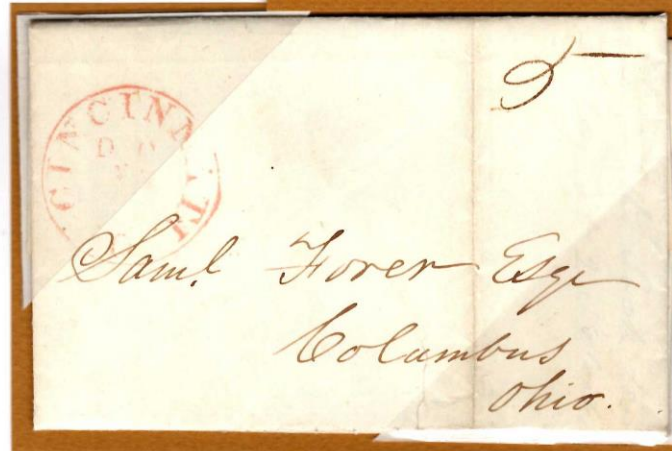 CINCINNATI
5
Saml. Forer Esqr
Columbus
Ohio.